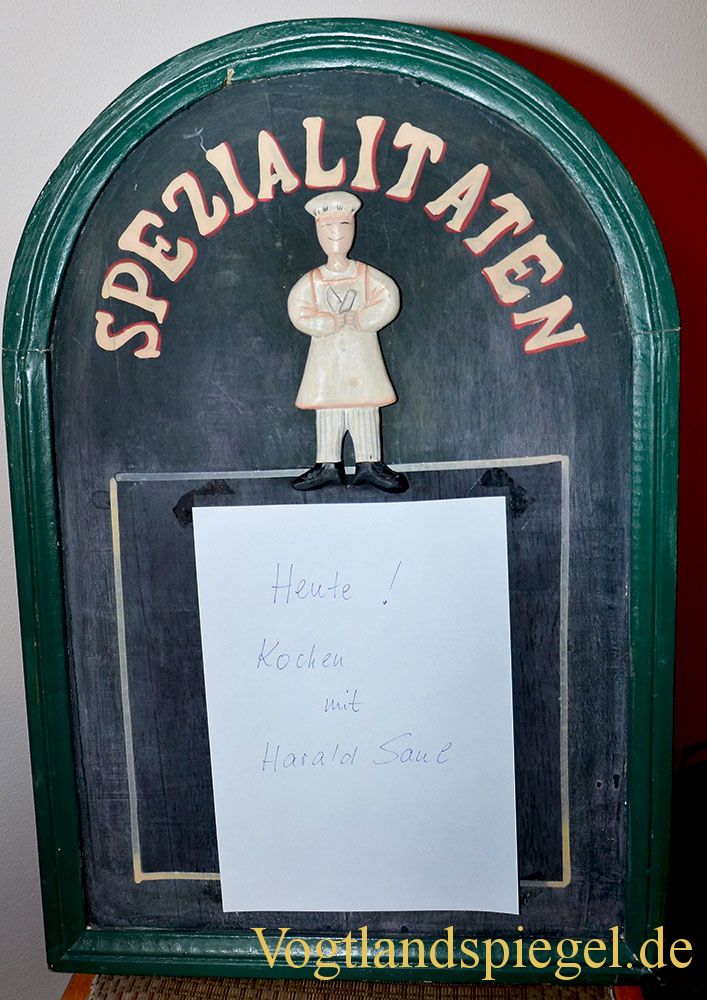 SPEZIALITATEN
Heute !
Kochen
mit
Harald Saul
Vogtlandspiegel.de